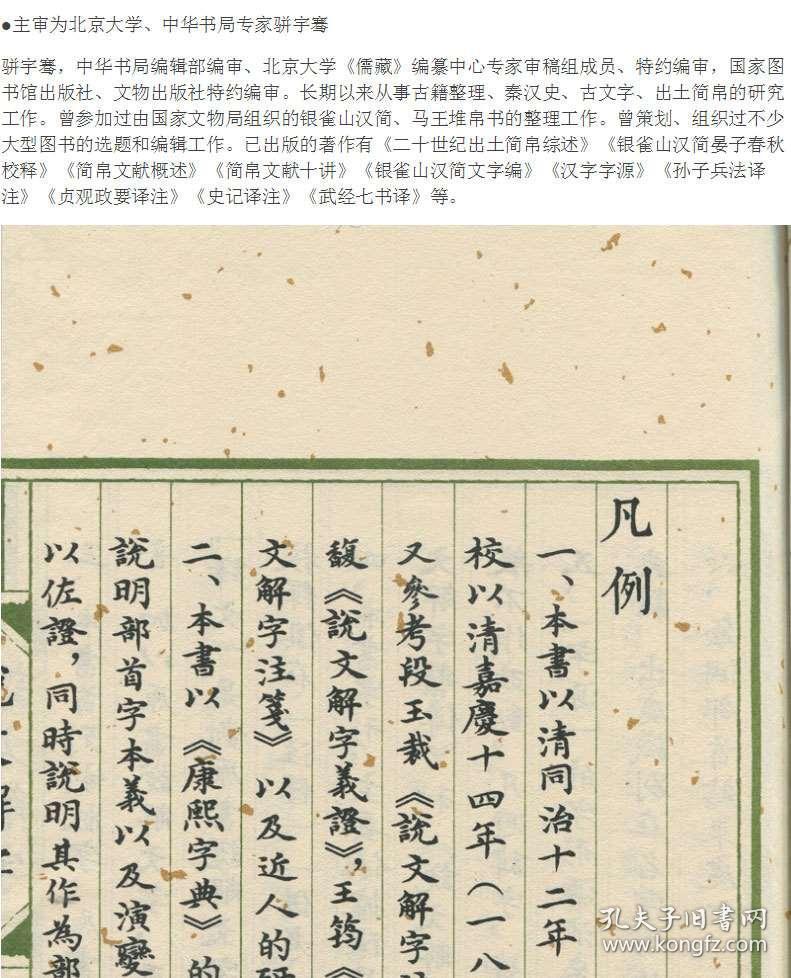 ●主审为北京大学、中华书局专家骈宇骞
骈宇骞，中华书局编辑部编审、北京大学《儒藏》编纂中心专家审稿组成员、特约编审，国家图
书馆出版社、文物出版社特约编审。长期以来从事古籍整理、秦汉史、古文字、出土简帛的研究
工作。曾参加过由国家文物局组织的银雀山汉简、马王堆帛书的整理工作。曾策划、组织过不少
大型图书的选题和编辑工作。已出版的著作有《二十世纪出土简帛综述》《银雀山汉简晏子春秋
校释》《简帛文献概述》《简帛文献十讲》《银雀山汉简文字编》《汉字字源》《孙子兵法译
注》《贞观政要译注》《史记译注》《武经七书译》等。
凡例
一、本書以清同治十二年
校以清嘉慶十四年（一八
又參考段玉裁《說文解字
馥《說文解字義證》，王筠《
文解字注箋》以及近人的研
二、本書以《康熙字典》的
說明部首字本義以及演變
以佐證，同時說明其作為部
孔夫子旧书网
www.kongfz.com